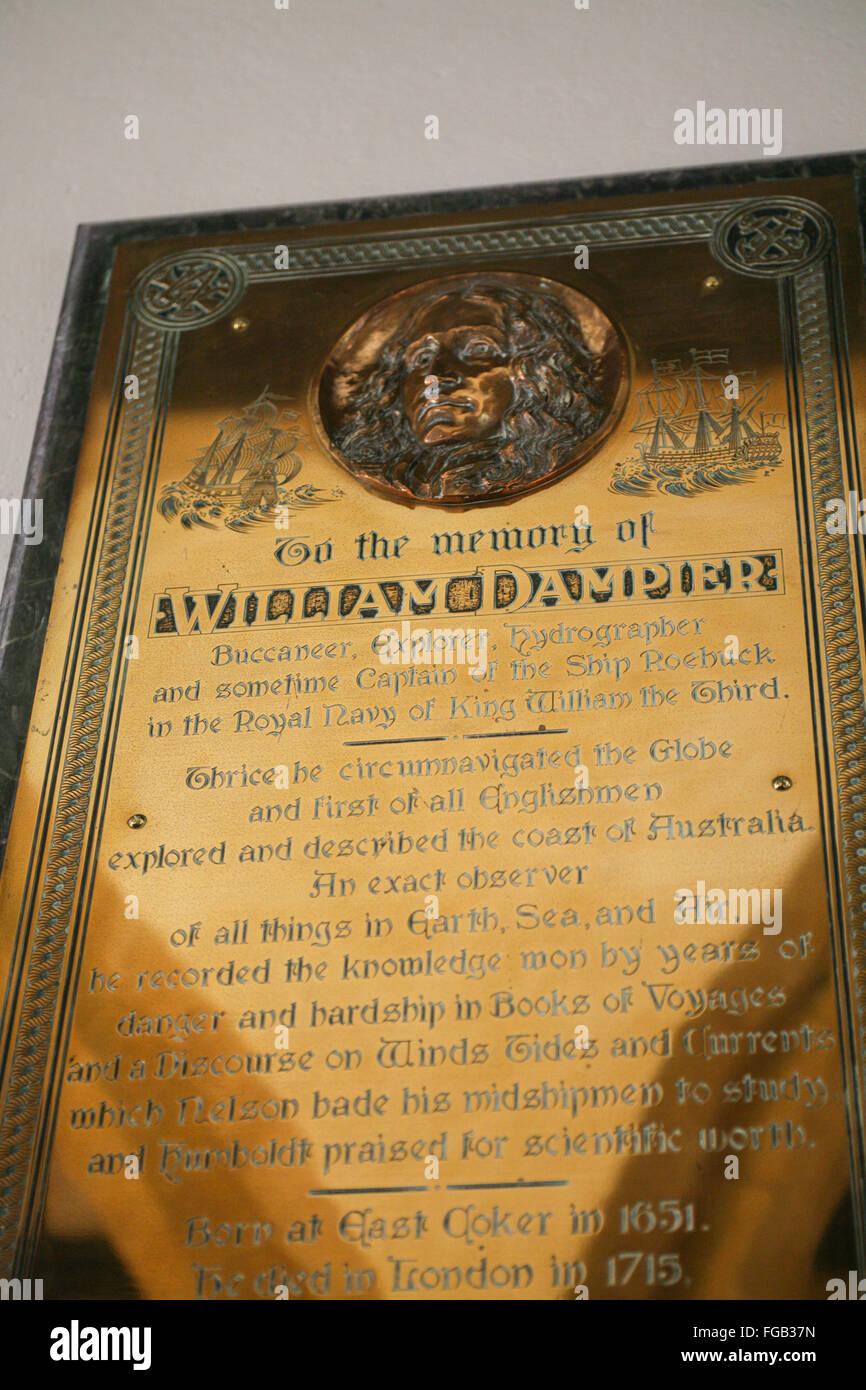 To the memory of
WILLIAM DAMPIER
Buccaneer, Explorer, Hydrographer
and sometime Captain of the Ship Roebuck
in the Royal Navy of King William the Third.
Thrice he circumnavigated the Globe
and first of all Englishmen
explored and described the coast of Australia.
An exact observer
of all things in Earth, Sea, and Air,
he recorded the knowledge won by years of
danger and hardship in Books of Voyages
and a Discourse on Winds Tides and Currents
which Nelson bade his midshipmen to study,
and Humboldt praised for scientific worth.
Born at East Coker in 1651.
He died in London in 1715.
alamy
alamy
a a
a a
a a
a a
a a
a a
alamy
Image ID: FGB37N
www.alamy.com